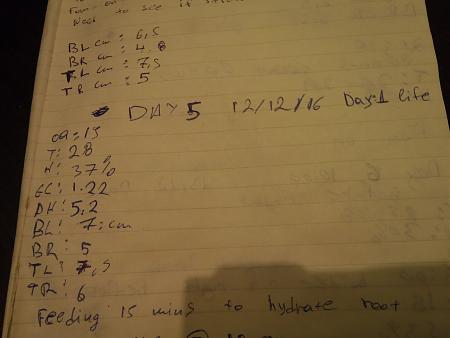 Need to see if
BL cm: 6,5
BR cm: 4.8
TL cm: 7,5
TR cm: 5
DAY 5 12/12/16 Day:1 life
09:15
T: 28
H: 37%
EC: 1.22
PH: 5,2
BL: 7:cm
BR: 5
TL: 7,5
TR: 6
Feeding 15 mins to hydrate root